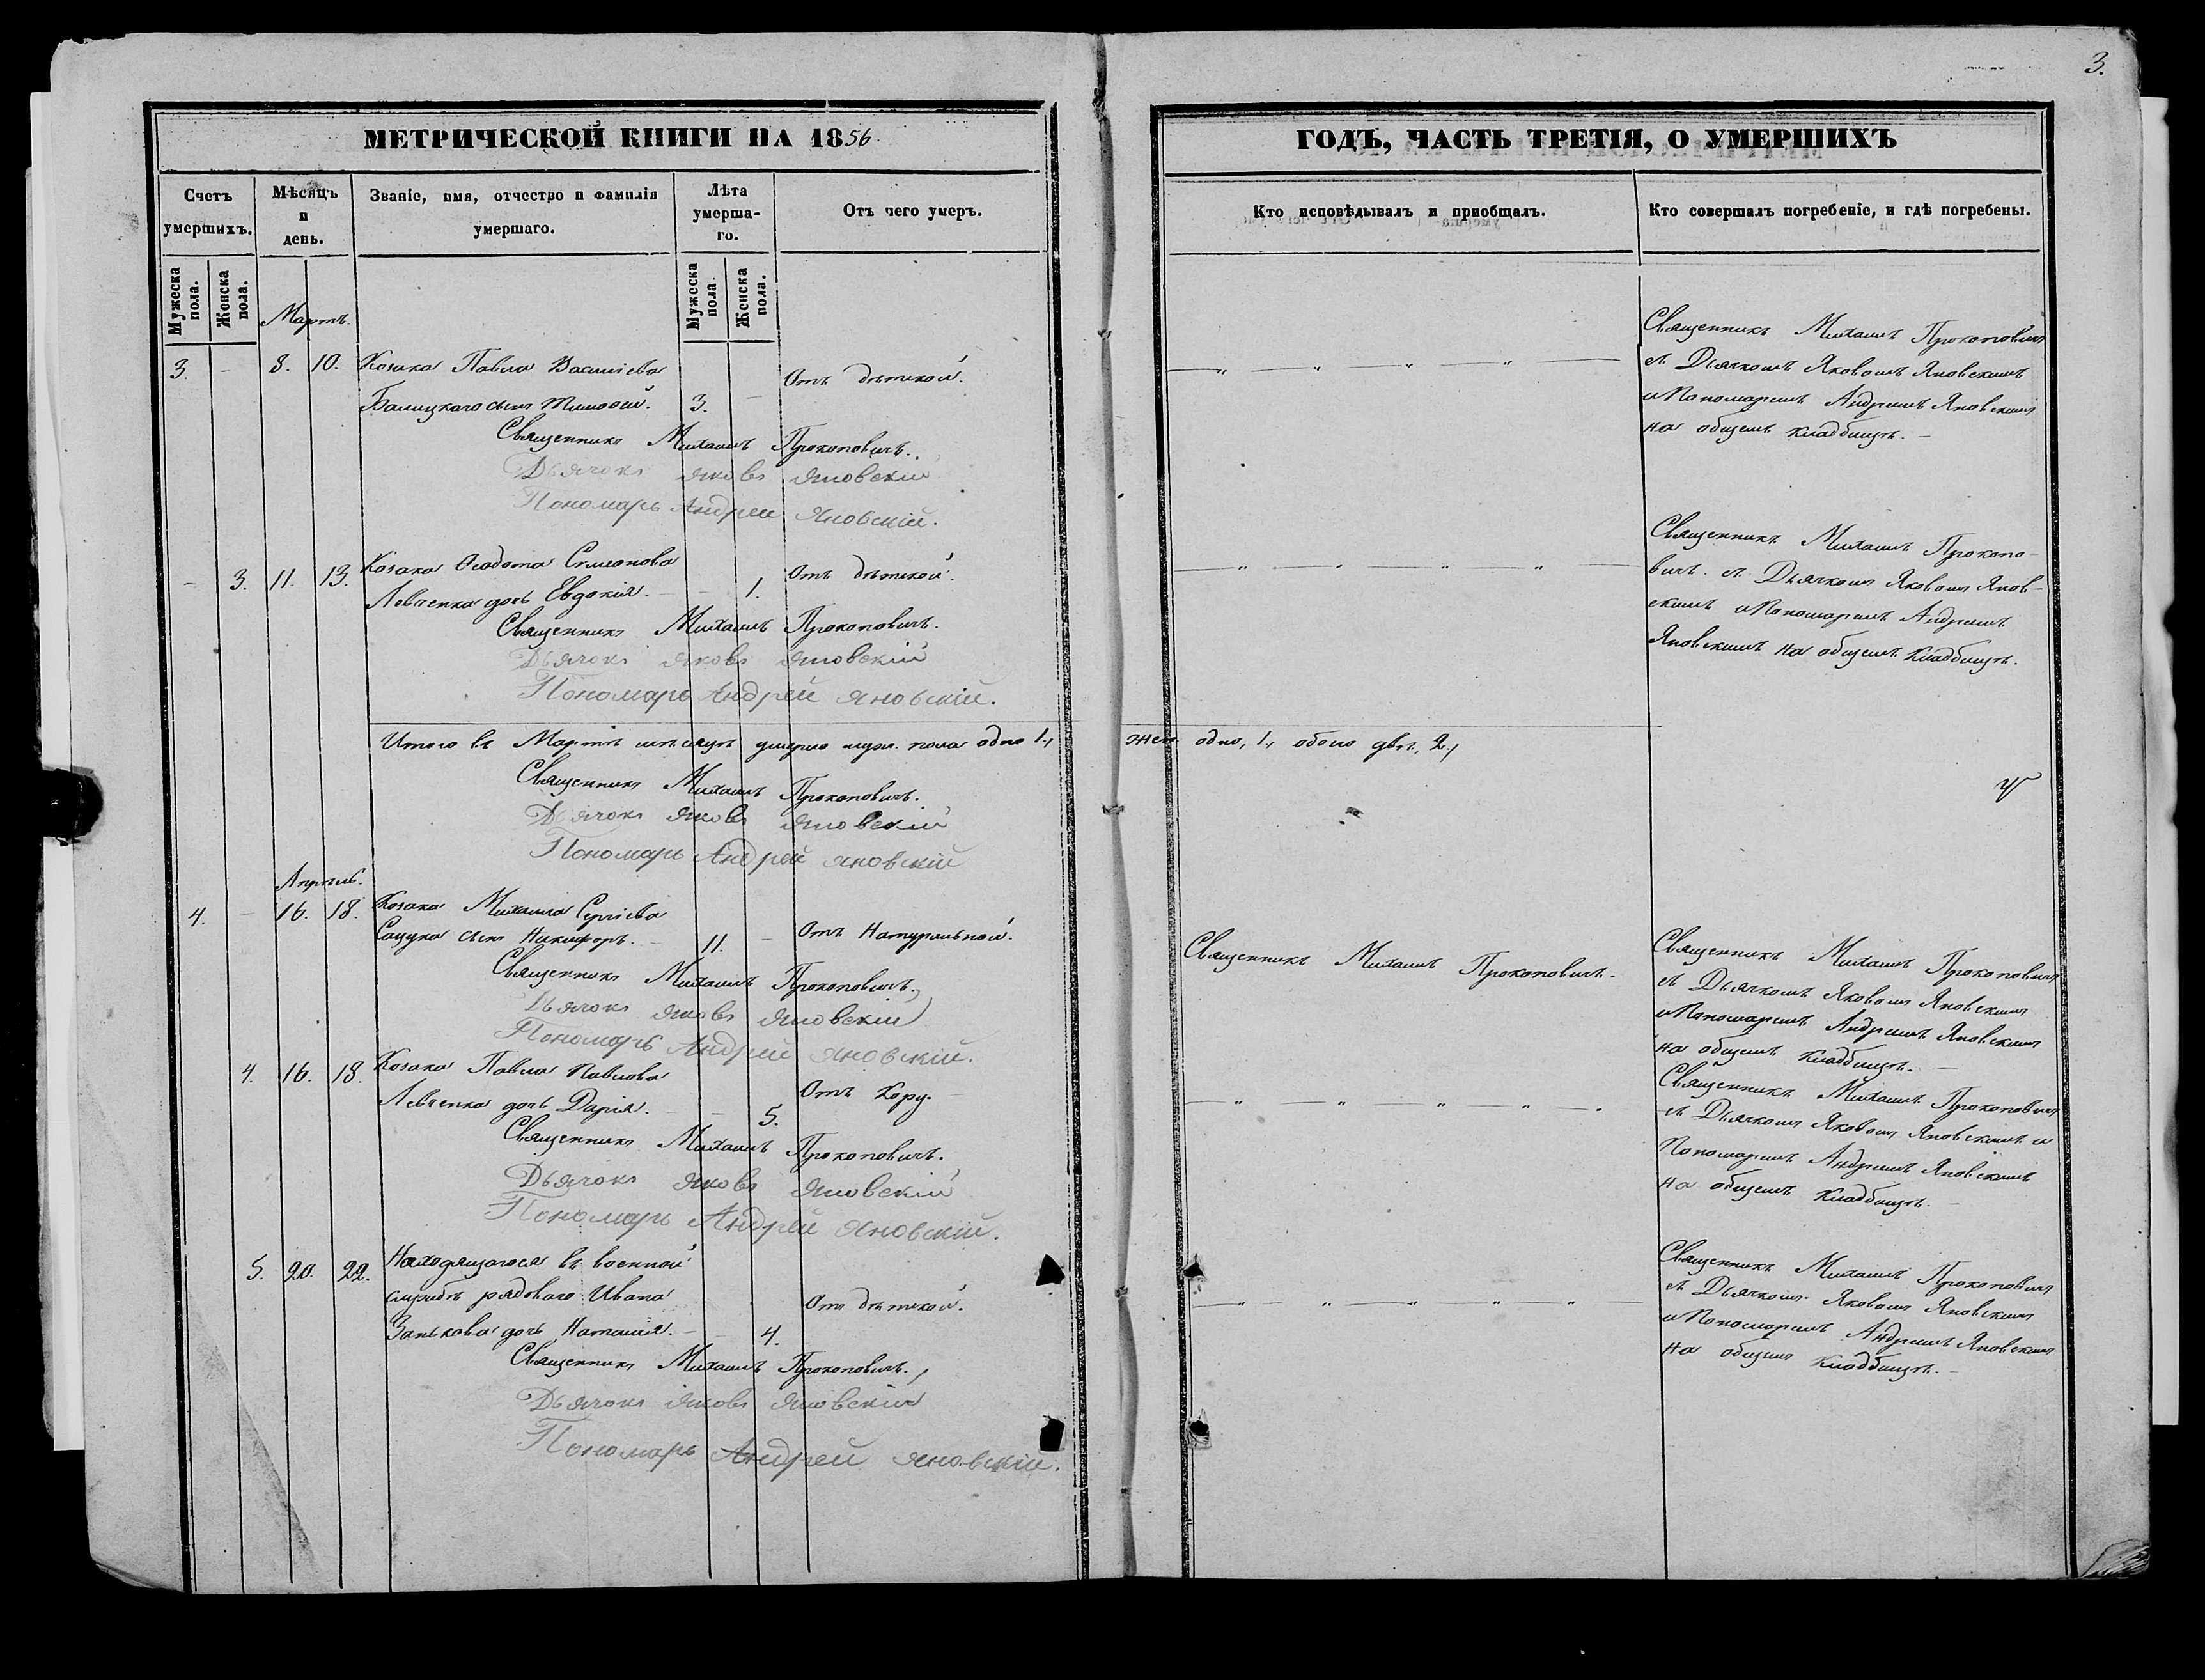 3.
МЕТРИЧЕСКОЙ КНИГИ НА 1856.
ГОДЪ, ЧАСТЬ ТРЕТІЯ, О УМЕРШИХЪ
Счетъ умершихъ.
Мѣсяцъ и день.
Званіе, имя, отчество и фамилія умершаго.
Лѣта умерша-го.
Отъ чего умеръ.
Кто исповѣдывалъ и пріобщалъ.
Кто совершалъ погребеніе, и гдѣ погребены.
Мужеска пола.
Женска пола.
Мужеска пола.
Женска пола.
Мартъ.
3. - 8. 10. Козака Павла Василіева
Балицкаго сынъ Тимофей. 3. - Отъ дѣтской.
Священникъ Михаилъ Прокоповичъ.
Дьячокъ Яковъ Яновскій
Пономарь Андрей Яновскій.
Священникъ Михаилъ Прокоповичъ
съ Дьячкомъ Яковомъ Яновскимъ
и Пономаремъ Андреемъ Яновскимъ
на общемъ кладбищѣ. -
- 3. 11. 13. Козака Ѳеодота Симеонова
Левченка дочь Евдокія. - - 1. Отъ дѣтской.
Священникъ Михаилъ Прокоповичъ.
Дьячокъ Яковъ Яновскій
Пономарь Андрей Яновскій.
Священникъ Михаилъ Прокопо-
вичъ съ Дьячкомъ Яковомъ Янов-
скимъ и Пономаремъ Андреемъ
Яновскимъ на общемъ кладбищѣ.
Итого въ Мартѣ мѣсяцѣ умерло муж. пола одно 1, жен. одно, 1, обоего двѣ, 2,
Священникъ Михаилъ Прокоповичъ.
Дьячокъ Яковъ Яновскій
Пономарь Андрей Яновскій
Апрѣль.
4. - 16. 18. Козака Михаила Сергіева
Сацука сынъ Никифоръ. - 11. - Отъ Натуральной.
Священникъ Михаилъ Прокоповичъ.
Дьячокъ Яковъ Яновскій
Пономарь Андрей Яновскій.
Священникъ Михаилъ Прокоповичъ.
Священникъ Михаилъ Прокоповичъ
съ Дьячкомъ Яковомъ Яновскимъ
и Пономаремъ Андреемъ Яновскимъ
на общемъ кладбищѣ. -
4. 16. 18. Козака Павла Павлова
Левченка дочь Дарія. - - 5. Отъ Кору. -
Священникъ Михаилъ Прокоповичъ.
Дьячокъ Яковъ Яновскій
Пономарь Андрей Яновскій.
Священникъ Михаилъ Прокоповичъ
съ Дьячкомъ Яковомъ Яновскимъ и
Пономаремъ Андреемъ Яновскимъ
на общемъ кладбищѣ. -
5. 20. 22. Находящагося въ военной
службѣ рядоваго Ивана
Занькова дочь Наталія. - - 4. Отъ дѣтской.
Священникъ Михаилъ Прокоповичъ.
Дьячокъ Яковъ Яновскій
Пономарь Андрей Яновскій.
Священникъ Михаилъ Прокоповичъ
съ Дьячкомъ Яковомъ Яновскимъ
и Пономаремъ Андреемъ Яновскимъ
на общемъ кладбищѣ. -